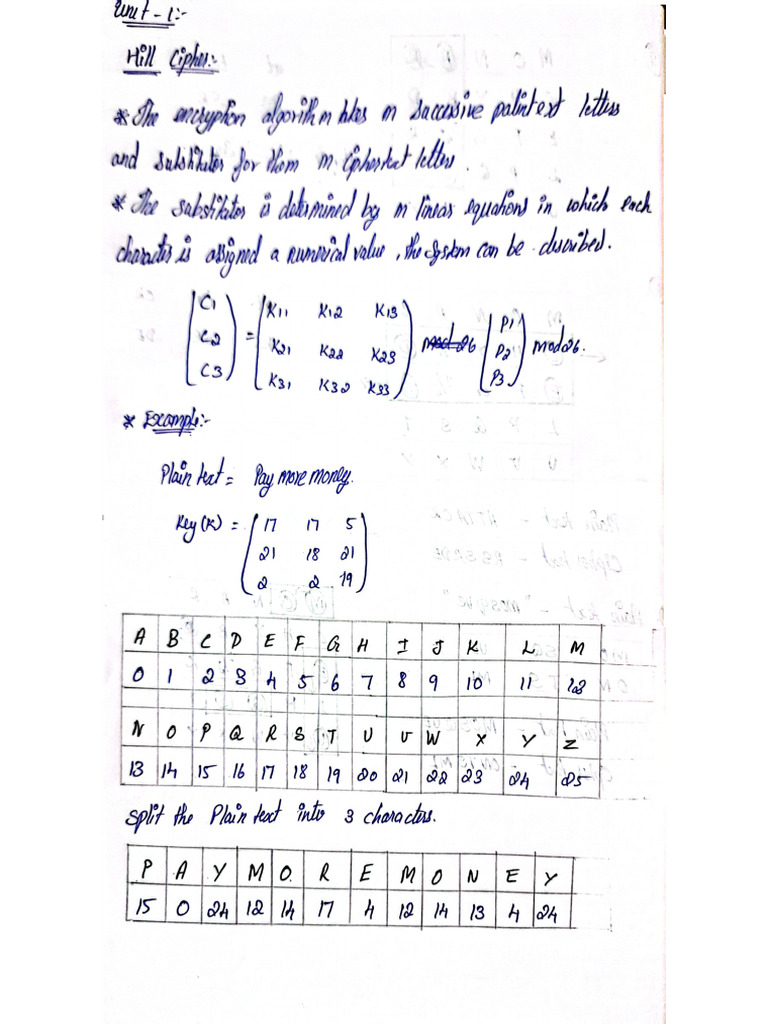 Unit - 1:-
Hill Cipher:-
* The encryption algorithm takes m successive palintext letters
and substitutes for them m ciphertext letters.
* The substitutes is determined by m linear equations in which each
character is assigned a numerical value, the system can be described.
C1 K11 K12 K13 P1
C2 = K21 K22 K23 mod 26 P2 mod 26.
C3 K31 K32 K33 P3
* Example:-
Plain text = Pay more money.
Key (K) = 17 17 5
21 18 21
2 2 19
A B C D E F G H I J K L M
0 1 2 3 4 5 6 7 8 9 10 11 12
N O P Q R S T U V W X Y Z
13 14 15 16 17 18 19 20 21 22 23 24 25
split the Plain text into 3 characters.
P A Y M O. R E M O N E Y
15 0 24 12 14 17 4 12 14 13 4 24